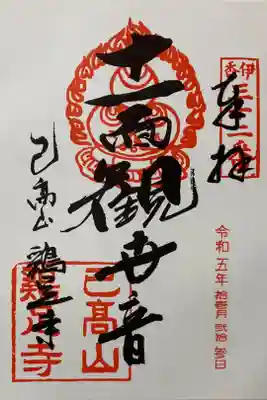 伊香
奉拝
令和五年 拾壱月 弐拾参日
十一面観世音
己高山 鶏足寺
己高山
鶏足寺